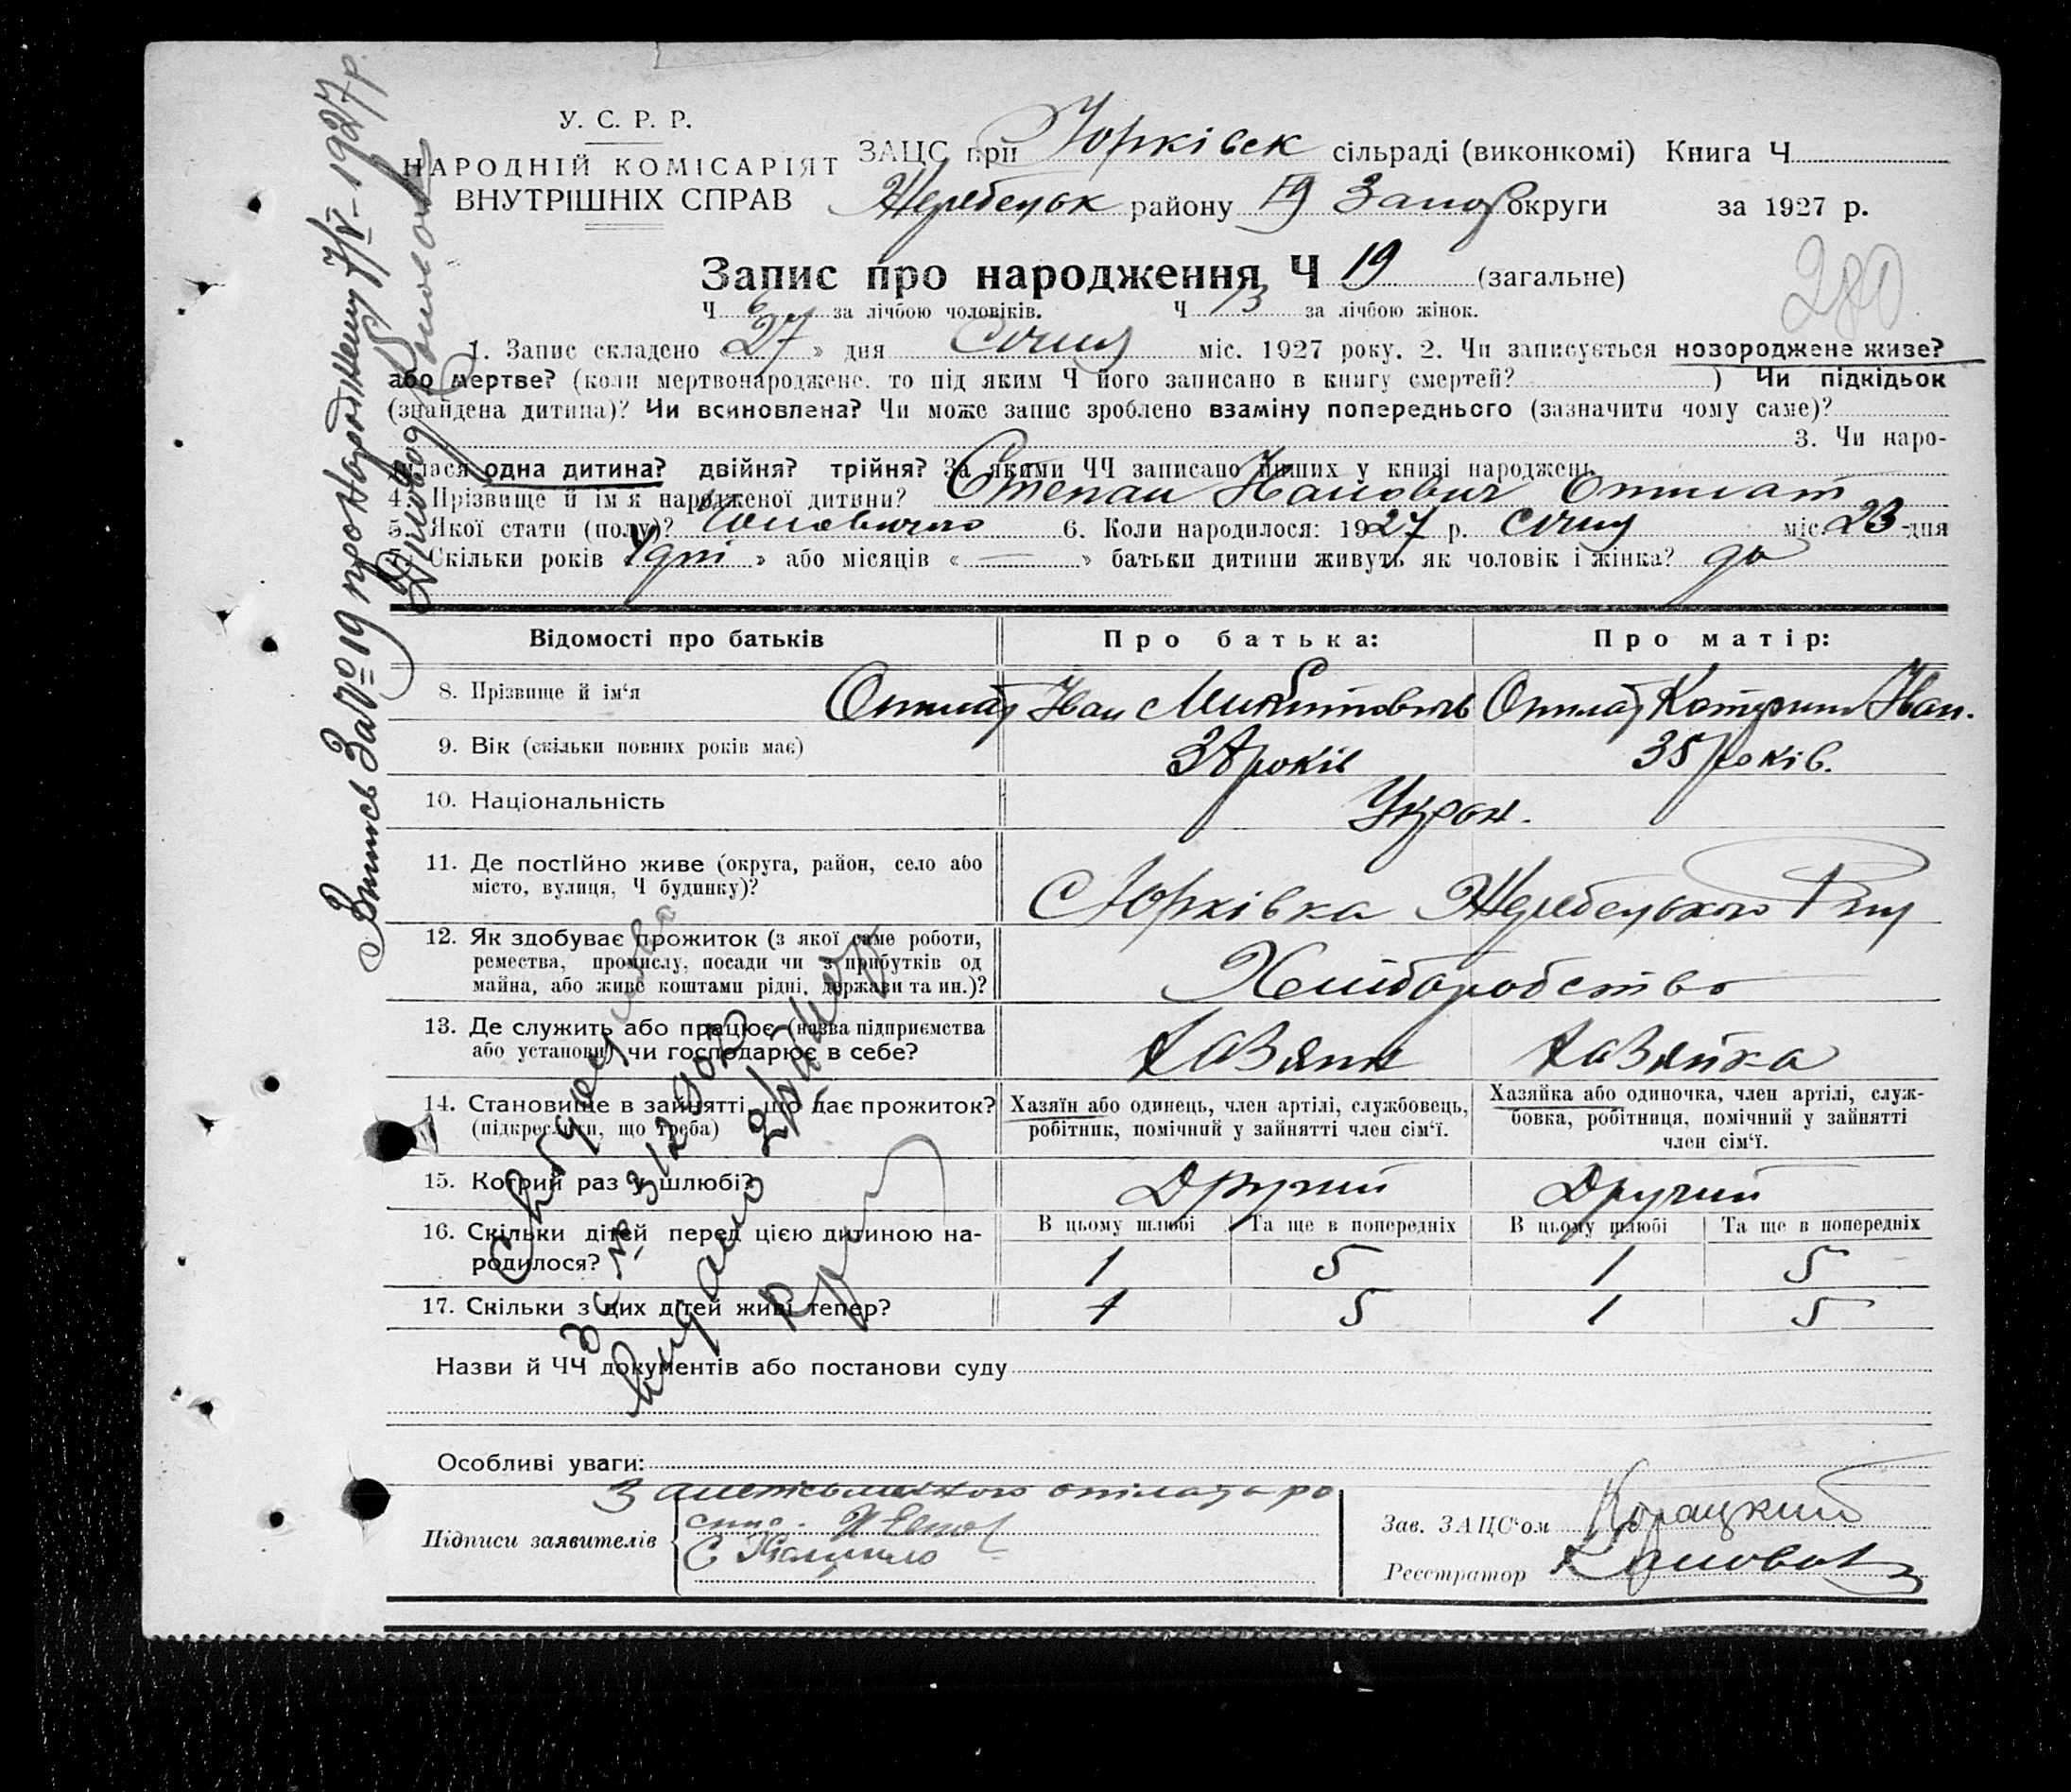 У. С. Р. Р.
НАРОДНІЙ КОМІСАРІЯТ
ВНУТРІШНІХ СПРАВ
ЗАЦС при Юрківск сільраді (виконкомі) Книга Ч
Жеребецьк району Запор округи за 1927 р.
280
Запис про народження Ч 19 (загальне)
Ч 6 за лічбою чоловіків. Ч 13 за лічбою жінок.
1. Запис складено « 27 » дня Січня міс. 1927 року. 2. Чи записується новороджене живе?
або мертве? (коли мертвонароджене, то під яким Ч його записано в книгу смертей? ) Чи підкідьок
(знайдена дитина)? Чи всиновлена? Чи може запис зроблено взаміну попереднього (зазначити чому саме)?
3. Чи наро-
дилася одна дитина? двійня? трійня? За якими ЧЧ записано инших у книзі народжень
4. Прізвище й ім'я народженої дитини? Степан Іванович Опилат
5. Якої стати (полу)? Чоловічого 6. Коли народилося: 1927 р. Січня міс. 23 дня
7. Скільки років » або місяців « — » батьки дитини живуть як чоловік і жінка? да
Відомості про батьків Про батька: Про матір:
8. Прізвище й ім'я Опилат Іван Микитовичь Опилат Катерина Іван.
9. Вік (скільки повних років має) 38 років 35 років.
10. Національність Укран.
11. Де постІйно живе (округа, район, село або
місто, вулиця, Ч будинку)?
С Юрківка Жеребецького Р-ну
12. Як здобуває прожиток (з якої саме роботи,
ремества, промислу, посади чи з прибутків од
майна, або живе коштами рідні, держави та ин.)?
Хлиборобство
13. Де служить або працює (назва підприємства
або установи) чи господарює в себе?
Хазяин Хазяйка
14. Становище в зайнятті, що дає прожиток?
(підкреслити, що треба)
Хазяїн або одинець, член артілі, службовець,
робітник, помічний у зайнятті член сім'ї.
Хазяйка або одиночка, член артілі, служ-
бовка, робітниця, помічний у зайнятті
член сім'ї.
15. Котрий раз у шлюбі? Другий Другий
16. Скільки дітей перед цією дитиною на-
родилося?
В цьому шлюбі Та ще в попередніх В цьому шлюбі Та ще в попередніх
1 5 1 5
17. Скільки з цих дітей живі тепер? 1 5 1 5
Назви й ЧЧ документів або постанови суду
Особливі уваги:
Підписи заявителів
Зав. ЗАЦС'ом
Реєстратор
Випись За № 19 про Народження 7/V-1927 р.